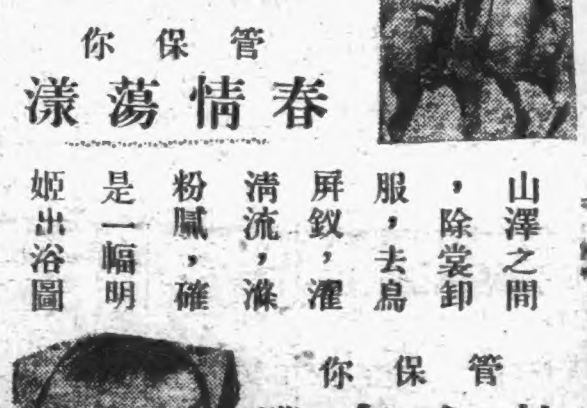 管保你
春情蕩漾
山澤之間
，除裳卸
服，去鳥
屏釵，濯
清流，滌
粉膩，確
是一幅明
姬出浴圖
管保你